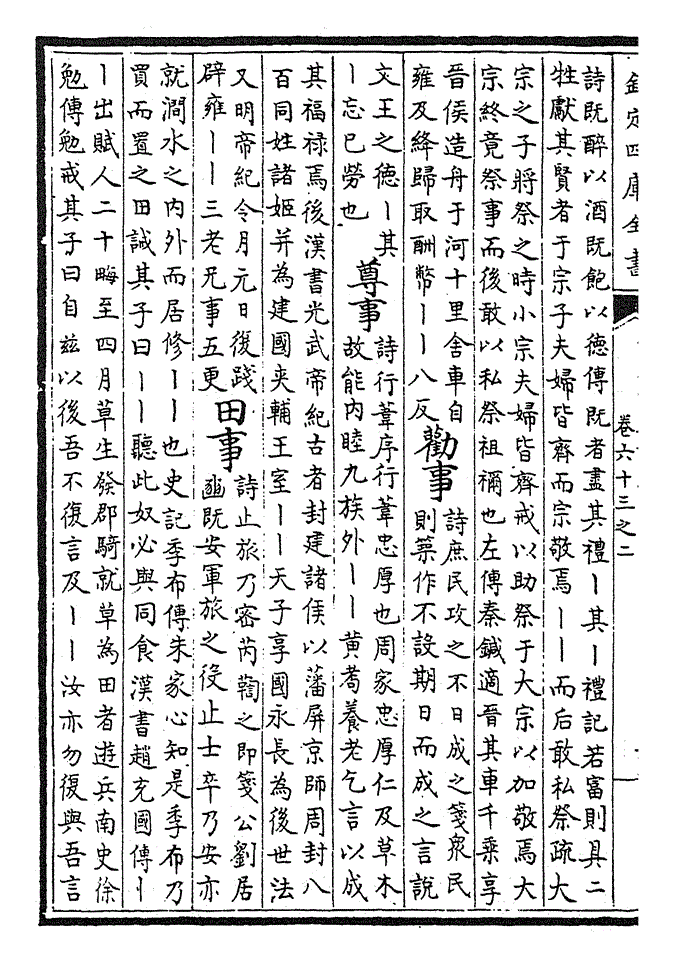 欽定四庫全書
卷六十三之二
詩既醉以酒既飽以德傳既者盡其禮丨其丨禮記若富則具二
牲獻其賢者于宗子夫婦皆齊而宗敬焉丨丨而后敢私祭疏大
宗之子將祭之時小宗夫婦皆齊戒以助祭于大宗以加敬焉大
宗終竟祭事而後敢以私祭祖禰也左傳秦鍼適晉其車千乘享
晉侯造舟于河十里舍車自
雍及絳歸取酬幣丨丨八反
勸事
詩庶民攻之不日成之箋衆民
則築作不設期日而成之言說
文王之德丨其
丨忘已勞也
尊事
詩行葦序行葦忠厚也周家忠厚仁及草木
故能内睦九族外丨丨黄耈養老乞言以成
其福禄焉後漢書光武帝紀古者封建諸侯以藩屏京師周封八
百同姓諸姬并為建國夹輔王室丨丨天子享國永長為後世法
又明帝紀令月元日復踐
辟雍丨丨三老兄事五更
田事
詩止旅乃密芮鞫之即箋公劉居
豳既安軍旅之役止士卒乃安亦
就澗水之内外而居修丨丨也史記季布傳朱家心知是季布乃
買而置之田誡其子曰丨丨聽此奴必與同食漢書趙充國傳丨
丨出賦人二十畮至四月草生發郡騎就草為田者遊兵南史徐
勉傳勉戒其子曰自兹以後吾不復言及丨丨汝亦勿復與吾言